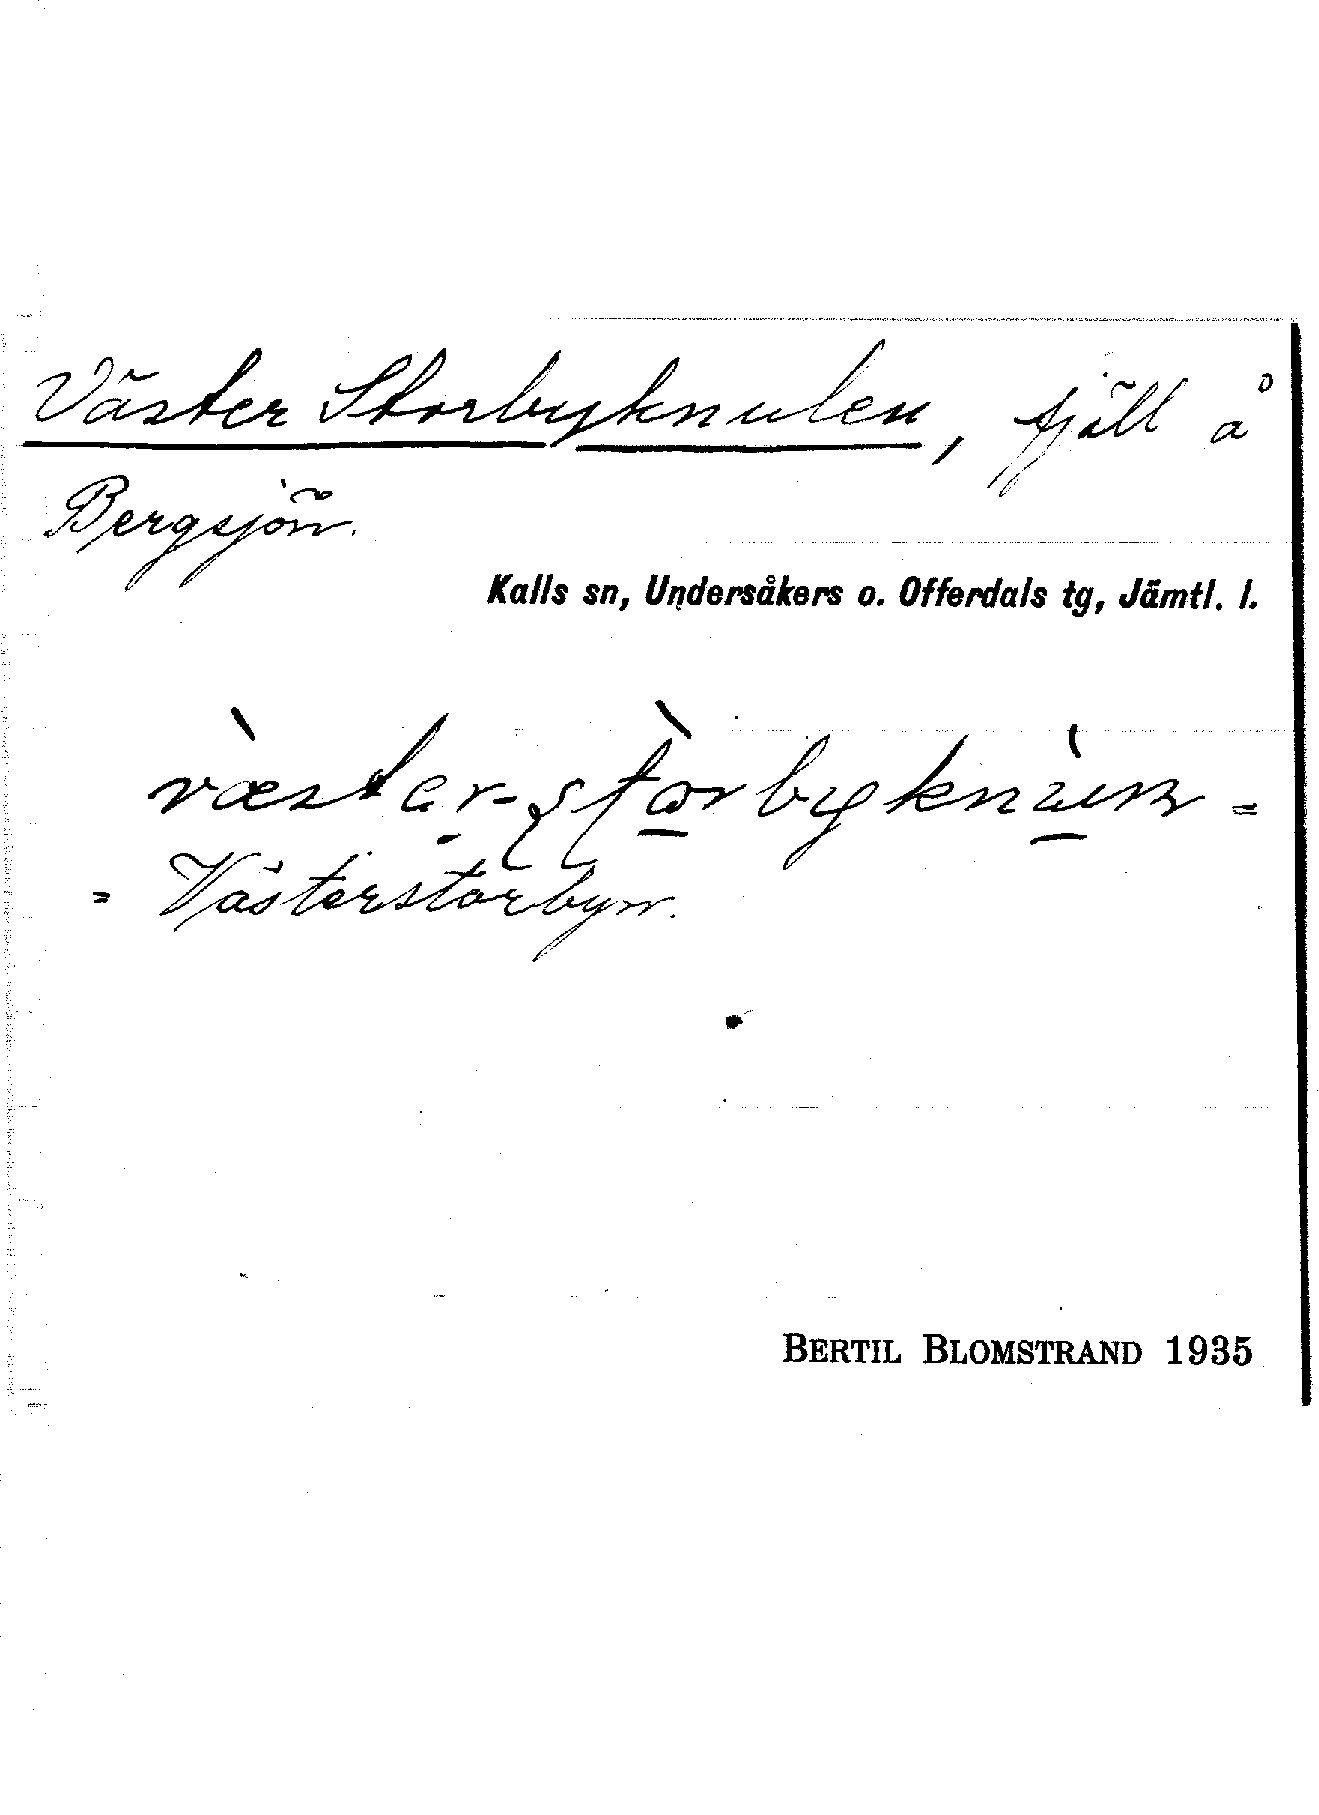 Väster Storbyknulen, fjäll å
Bergsjön.
Kalls sn, Undersåkers o. Offerdals tg, Jämtl. l.
=
= Västerstorbyn.
BERTIL BLOMSTRAND 1935